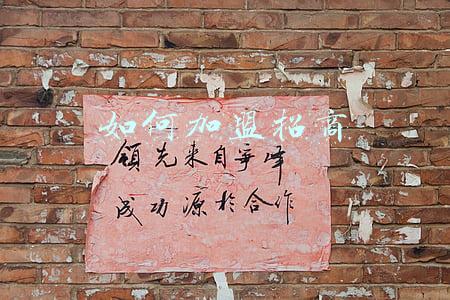 如何加盟招商
领先来自争峰
成功源於合作